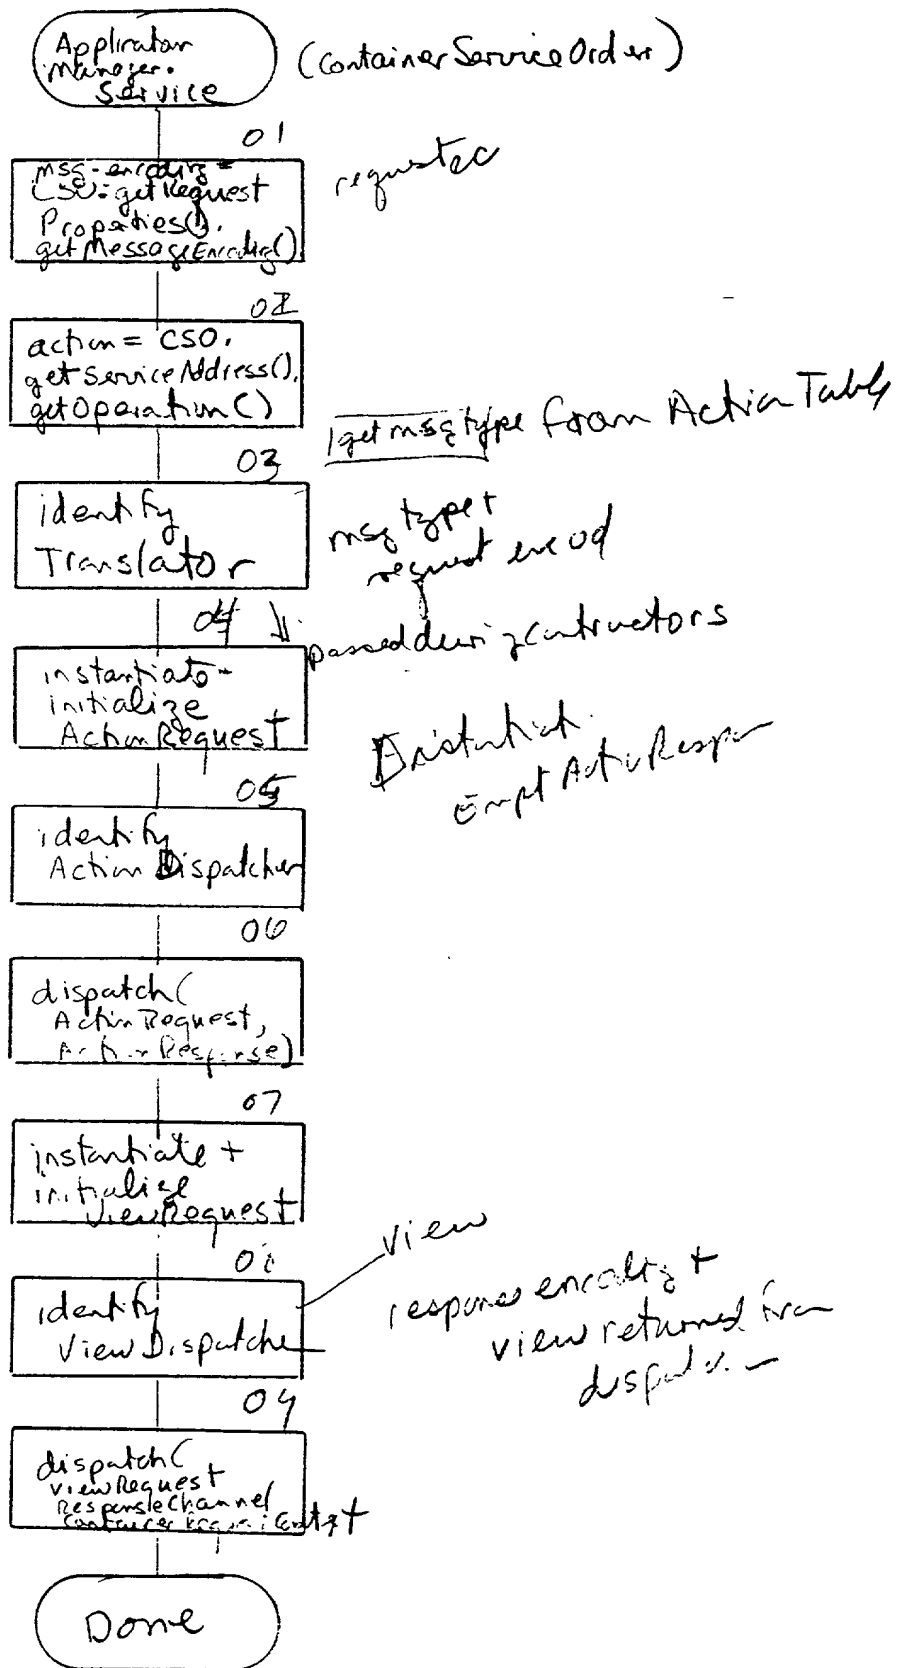 Application
Manager.
Service
(ContainerServiceOrder)
01
msg-encoding =
CSO.getRequest
Properties().
getMessageEncoding()
02
action = CSO.
getServiceAddress().
getOperation()
get msg type from Action Table
03
identify
Translator
msg type +
request encod
04
passed during contructors
instantiate -
initialize
ActionRequest
05
identify
Action Dispatcher
06
dispatch(
ActionRequest,
ActionResponse)
07
instantiate +
initialize
ViewRequest
view
identify
ViewDispatcher
response encoding +
view returned from
dispatch(
viewRequest
ResponseChannel
Done